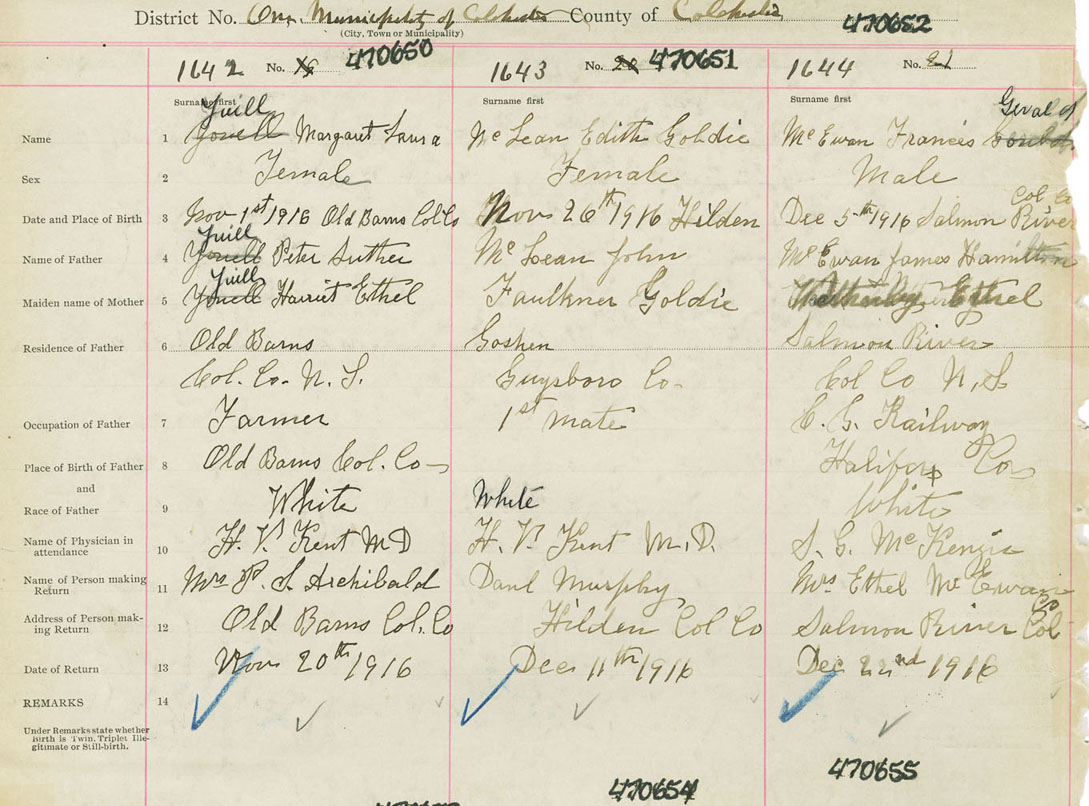 District No. One. Municipality of Colchester County of Colchester
(City, Town or Municipality)
470652
1642 No. 19 470650 1643 No. 20 470651 1644 No. 21
Surname first Surname first Surname first
Yuill Geral of
Name 1 Yowell Margaret Laura McLean Edith Goldie McEwan Francis
Sex 2 Female Female Male
Col Co
Date and Place of Birth 3 Nov 1st 1916 Old Barns Col Co Nov 26th 1916 Hilden Dec 5th 1916 Salmon River
Yuill
Name of Father 4 Yowell Peter Suther McLean John McEwan James Hamilton
Yuill
Maiden name of Mother 5 Yowell Harriet Ethel Faulkner Goldie Ethel
Residence of Father 6 Old Barns Goshen Salmon River
Col. Co. N. S. Guysboro Co. Col Co N. S
Occupation of Father 7 Farmer 1st Mate C. G. Railway
Place of Birth of Father 8 Old Barns Col. Co Halifax Co
and
Race of Father 9 White White White
Name of Physician in attendance 10 H. V. Kent M D H. V. Kent M. D. S. G. McKenzie
Name of Person making Return 11 Mrs P. S. Archibald Danl Murphy Mrs Ethel McEwan
Co
Address of Person mak-ing Return 12 Old Barns Col. Co Hilden Col Co Salmon River Col
Date of Return 13 Nov 20th 1916 Dec 11th 1916 Dec 22nd 1916
REMARKS 14
Under Remarks state whether
Birth is Twin, Triplet Ille-
gitimate or Still-birth.
470654 470655